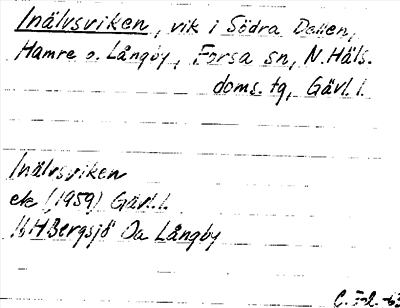 Inälvsviken, vik i Södra Dellen,
Hamre o. Långby, Forsa sn, N. Häls.
doms. tg, Gävl. l.
Inälvsviken
ek (1959) Gävl. l.
16H Bergsjö Da Långby